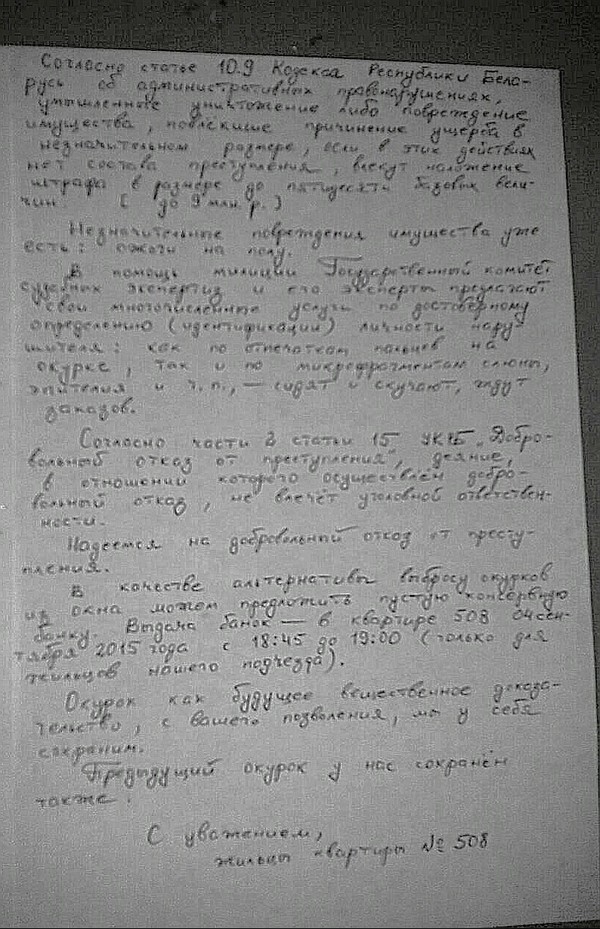 Согласно статье 10.9 Кодекса Республики Бела-
русь об административных правонарушениях,
умышленные уничтожение либо повреждение
имущества, повлекшие причинение ущерба в
незначительном размере, если в этих действиях
нет состава преступления, влекут наложение
штрафа в размере до пятидесяти базовых вели-
чин [ до 9 млн. р. ]
Незначительные повреждения имущества уже
есть: ожоги на полу.
В помощь милиции Государственный комитет
судебных экспертиз и его эксперты предлагают
свои многочисленные услуги по достоверному
определению (идентификации) личности нару-
шителя: как по отпечаткам пальцев на
окурке, так и по микрофрагментам слюны,
эпителия и т.п., — сидят и скучают, ждут
заказов.
Согласно части 2 статьи 15 УК РБ „Добро-
вольный отказ от преступления", деяние,
в отношении которого осуществлён добро-
вольный отказ, не влечёт уголовной ответствен-
ности.
Надеемся на добровольный отказ от престу-
пления.
В качестве альтернативы выбросу окурков
из окна можем предложить пустую консервную
банку. Выдача банок — в квартире 508 04 сен-
тября 2015 года с 18:45 до 19:00 (только для
жильцов нашего подъезда).
Окурок как будущее вещественное доказа-
тельство, с вашего позволения, мы у себя
сохраним.
Предыдущий окурок у нас сохранён
также.
С уважением,
жильцы квартиры № 508